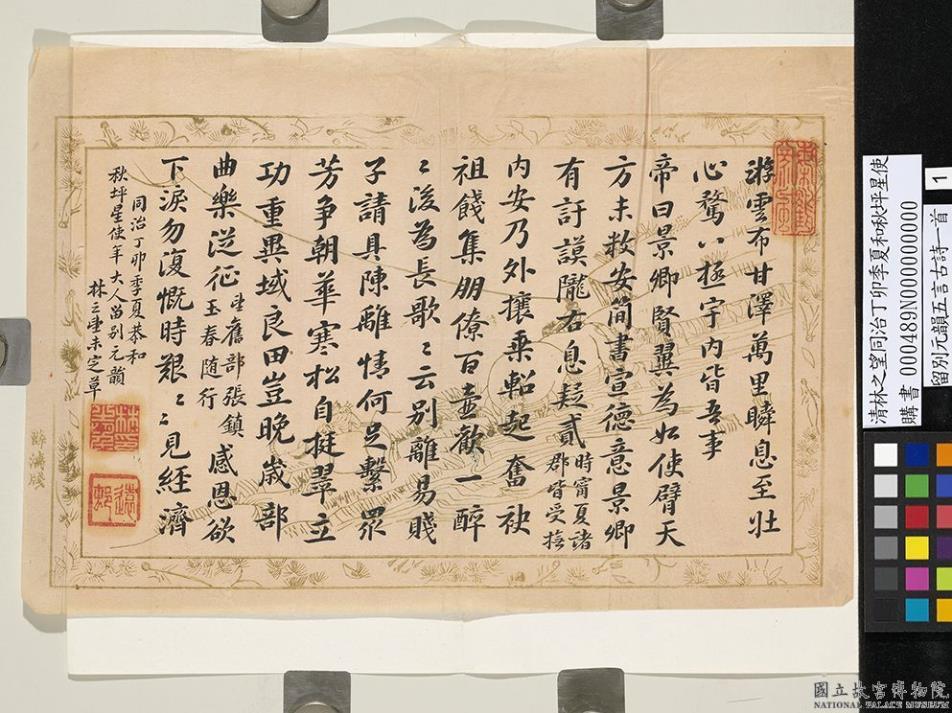 游雲布甘澤萬里瞬息至壯
心騖八極宇內皆吾事
帝曰景卿賢翼為如使臂天
方未敉安簡書宣德意景卿
有訏謨隴右息疑貳時甯夏諸郡皆受撫
內安乃外攘乘軺起奮袂
祖餞集朋僚百壺歡一醉
〻後為長歌〻云別離易賤
子請具陳離情何足繫眾
芳爭朝華寒松自挺翠立
功重異域良田豈晚歲部
曲樂從征望舊部張鎮玉春隨行感恩欲
下淚勿復慨時艱〻〻見經濟
同治丁卯季夏恭和
秋坪星使年大人畱別元韻
林之望未定草
遠邨
清林之望同治丁卯季夏和秋坪星使
留別元韻五言古詩一首
購書 000489N000000000
1
國立故宮博物院
NATIONAL PALACE MUSEUM